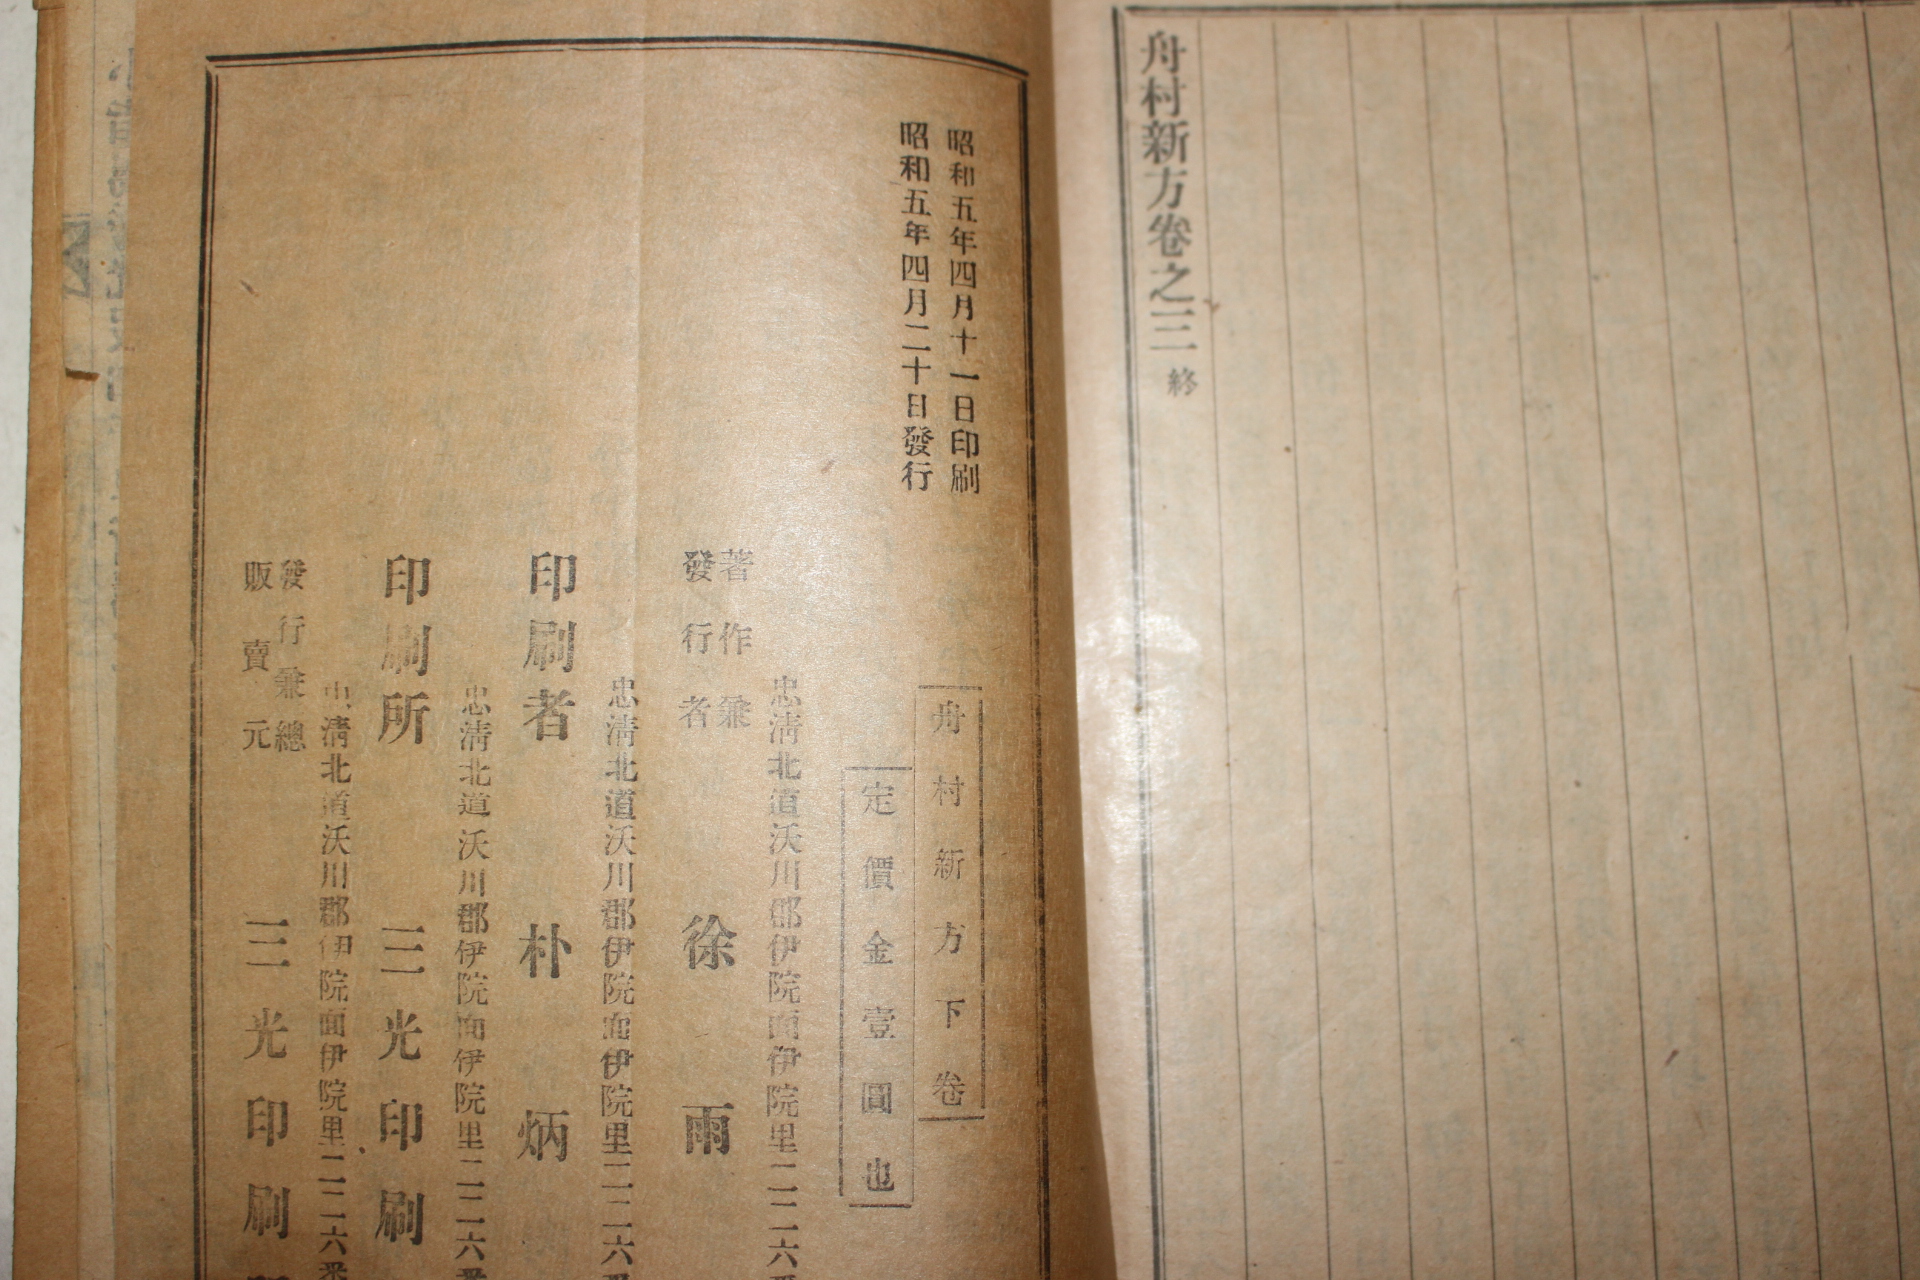 舟村新方卷之三 終
昭和五年四月十一日印刷
昭和五年四月二十日發行
舟村新方下卷
定價金壹圓也
忠淸北道沃川郡伊院面伊院里二二六
著作兼
發行者
徐雨
忠淸北道沃川郡伊院面伊院里二二六
印刷者
朴炳
忠淸北道沃川郡伊院面伊院里二二六
印刷所
三光印刷
忠淸北道沃川郡伊院面伊院里二二六
發行兼總
販賣元
三光印刷